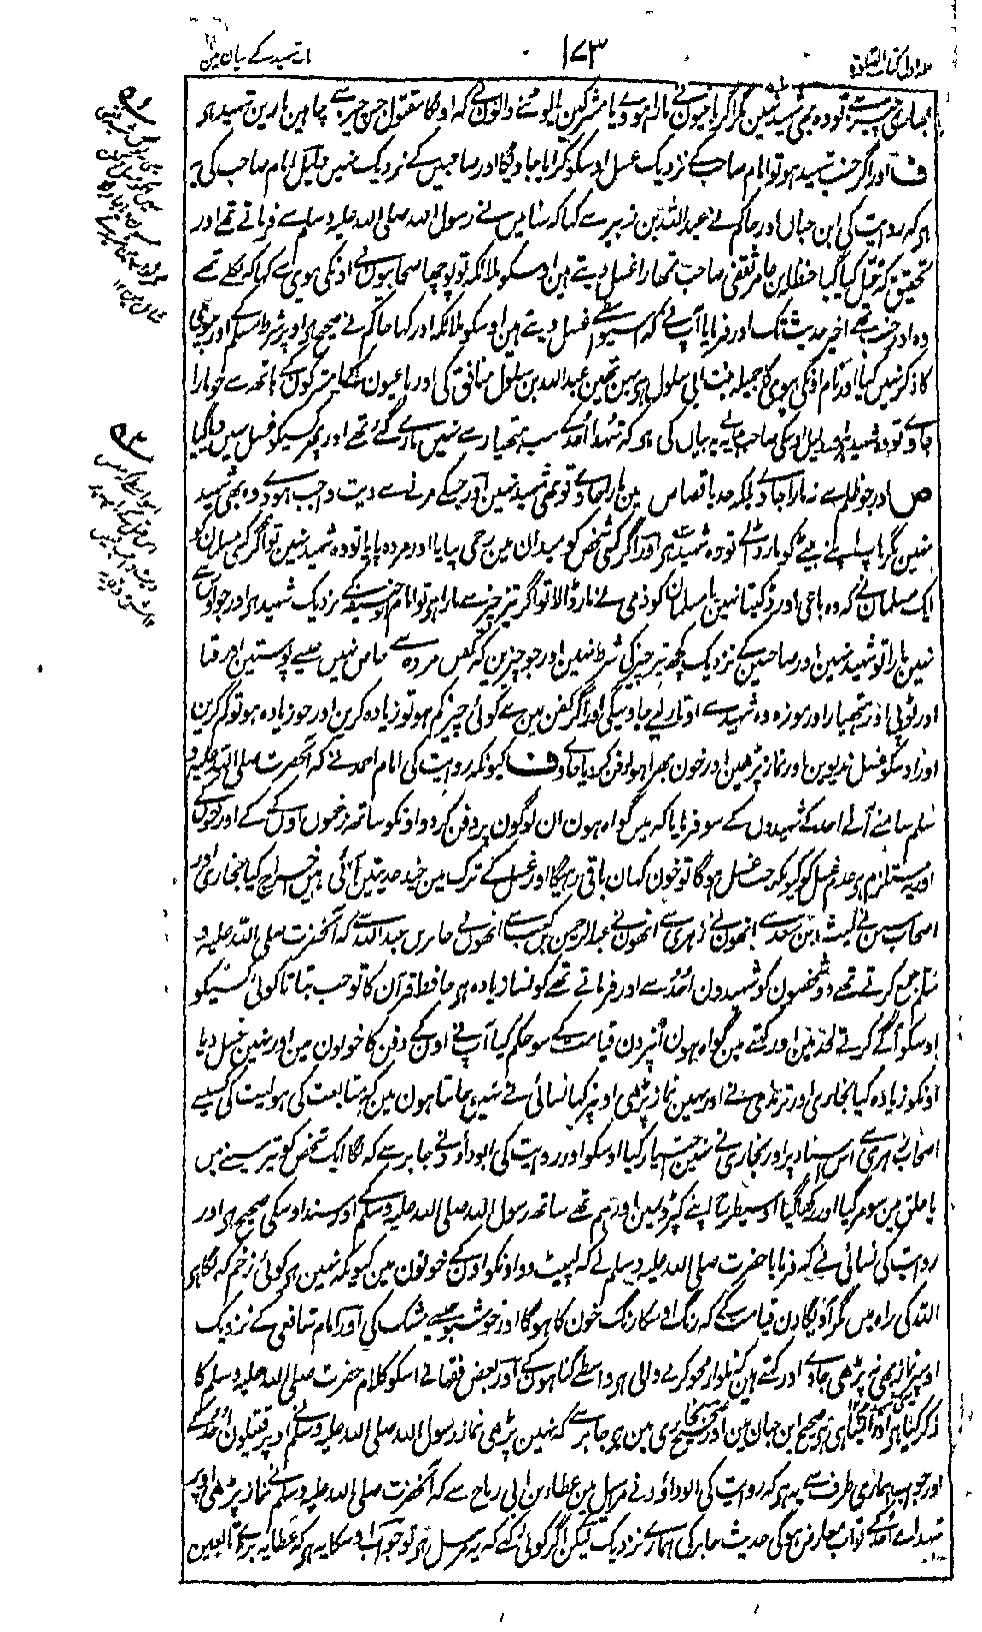 جلد اول کتاب الصلوٰۃ ۱۷۳ باب شہید کے بیان مین
بھاری چیز سے تو وہ بھی شہید نہین مگر اگر باغیون نے مارا ہو وے یا مشرکین یا لوٹنے والون نے کہ اونکا مقتول جس چیز سے چاہین مارین شہید ہر
ف اور اگر جنب شہید ہو تو امام صاحب کے نزدیک غسل اوسکو کرایا جاویگا اور صاحبین کے نزدیک نہین دلیل امام صاحب کی یہ
ہر کہ روایت کی ابن حبان اور حاکم نے عبد اللہ بن زبیر سے کہا کہ سنا مین نے رسول اللہ صلی اللہ علیہ وسلم سے فرماتے تھے اور
تحقیق کہ قتل کیا گیا حنظلہ بن عامر ثقفی صاحب تمھارا غسل دیتے ہین اوسکو ملائکہ تو پوچھا صحابیون نے اونکی بیوی سے کہا کہ نکلے تھے
وہ اور جنب تھے اخیر حدیث تک اور فرمایا آپ نے کہ اسیواسطے غسل دیتے ہین اوسکو ملائکہ اور کہا حاکم نے صحیح ہر اوپر شرط مسلم کے اور
کا ذکر نہین کیا اور نام اونکی بیوی کا جمیلہ بنت ابی سلول ہر بہن تھین عبد اللہ بن سلول منافق کی اور باغیون یا مشرکون کے ہاتھ سے جو مارا
جاوے تو وہ شہید ہر اور دلیل اوسکی صاحب ہدایہ نے یہ بیان کی ہر کہ شہداء اُحد کے سب ہتھیار سے نہین مارے گئے تھے اور پھر کسیکو غسل نہین دیا گیا
ص اور جو ظلم سے نہ مارا جاوے بلکہ حد یا قصاص مین مارا جاوے تو بھی شہید نہین اور جسکے مرنے سے دیت واجب ہووے وہ بھی شہید
نہین مگر باپ اپنے بیٹے کو مار ڈالے تو وہ شہید ہر اور اگر کسی شخص کو میدان مین زخمی پایا اور مردہ پایا تو وہ شہید نہین تو اگر کسی مسلمان کو
ایک مسلمان نے کہ وہ باغی اور ڈکیت نہین یا مسلمان کو ذمی نے مار ڈالا تو اگر تیز چیز سے مارا ہر تو امام ابو حنیفہ کے نزدیک شہید ہر اور جو اوس سے
نہین مارا تو شہید نہین اور صاحبین کے نزدیک کچھ تیز چیز کی شرط نہین اور جو چیزین کہ کفن مردہ سے خاص نہین جیسے پوستین اور قبا
اور ٹوپی اور ہتھیار اور موزہ وہ شہید سے اوتار لیے جاوینگی اور اگر کفن مین سے کوئی چیز کم ہو تو زیادہ کرین اور جو زیادہ ہو تو کم کرین
اور اوسکو غسل ندیوین اور نماز پڑھین اور خون بھرا ہوا دفن کر دیا جاوے ف کیونکہ روایت کی امام احمد نے کہ آنحضرت صلی اللہ علیہ و
سلم سامنے آئے احد کے شہیدون کے سو فرمایا کہ مین گواہ ہون ان لوگون پر دفن کردو اونکو ساتھ زخمون اون کے کے اور خون کے
اور یہ مستلزم ہر عدم غسل کو کیونکہ جب غسل ہوگا تو خون کہان باقی رہیگا اور غسل کے ترک مین چند حدیثین آئی ہین اخراج کیا بخاری اور
اصحاب سنن نے لیث ابن سعد سے انھون نے زہری سے انھون نے عبد الرحمن بن کعب سے انھون نے جابر بن عبد اللہ سے کہ آنحضرت صلی اللہ علیہ و
سلم جمع کرتے تھے دو شخصون کو شہیدون اُحد سے اور فرماتے تھے کونسا زیادہ ہر حافظ قرآن کا تو جب بتاتا کوئی کسیکو
اوسکو آگے کرتے لحد مین اور کہتے مین گواہ ہون اُنپر دن قیامت کے سو حکم کیا آپ نے اون کے دفن کا خونون مین اور نہین غسل دیا
اونکو زیادہ کیا بخاری اور ترمذی نے اور نہین نماز پڑھی اونپر کہا نسائی نے نہین جانتا ہون مین کہ متابعت کی ہو لیث کی کسینے
اصحاب زہری سے اس اسناد پر اور بخاری نے نہین اختیار کیا اوسکو اور روایت کی ابو داؤد نے جابر سے کہ لگا ایک شخص کو تیر سینے مین
یا حلق مین سو مرگیا اور رکھا گیا اوسیطرح اپنے کپڑون مین اور ہم تھے ساتھ رسول اللہ صلی اللہ علیہ وسلم کے اور سند اوسکی صحیح ہر اور
روایت کی نسائی نے کہ فرمایا حضرت صلی اللہ علیہ وسلم نے کہ لپیٹ دو اونکو اون کے خونون مین کیونکہ نہین ہر کوئی زخم کہ لگا ہر
اللہ کی راہ مین مگر آویگا دن قیامت کے کہ رنگ اوسکا رنگ خون کا ہوگا اور خوشبو جیسے مشک کی اور امام شافعی کے نزدیک
اوسپر نماز بھی نہ پڑھی جاوے اور کہتے ہین کہ تلوار محو کرنے والی ہر واسطے گناہون کے اور بعض فقہا نے اسکو کلام حضرت صلی اللہ علیہ وسلم کا
ذکر کیا ہر اور ایسا ہی ہر صحیح ابن حبان مین اور صحیح بخاری مین ہر جابر سے کہ نہین پڑھی نماز رسول اللہ صلی اللہ علیہ وسلم نے اوپر قتیلون اُحد کے
اور جواب ہماری طرف سے یہ ہر کہ روایت کی ابو داؤد نے مراسیل مین عطاء بن ابی رباح سے کہ آنحضرت صلی اللہ علیہ وسلم نے نماز پڑھی اوپر
شہداء اُحد کے تو اب معارض ہوگی حدیث جابر کی ہمارے نزدیک لیکن اگر کوئی کہے کہ یہ مرسل ہر تو جواب اوسکا یہ ہر کہ عطا یہ بڑے تابعین